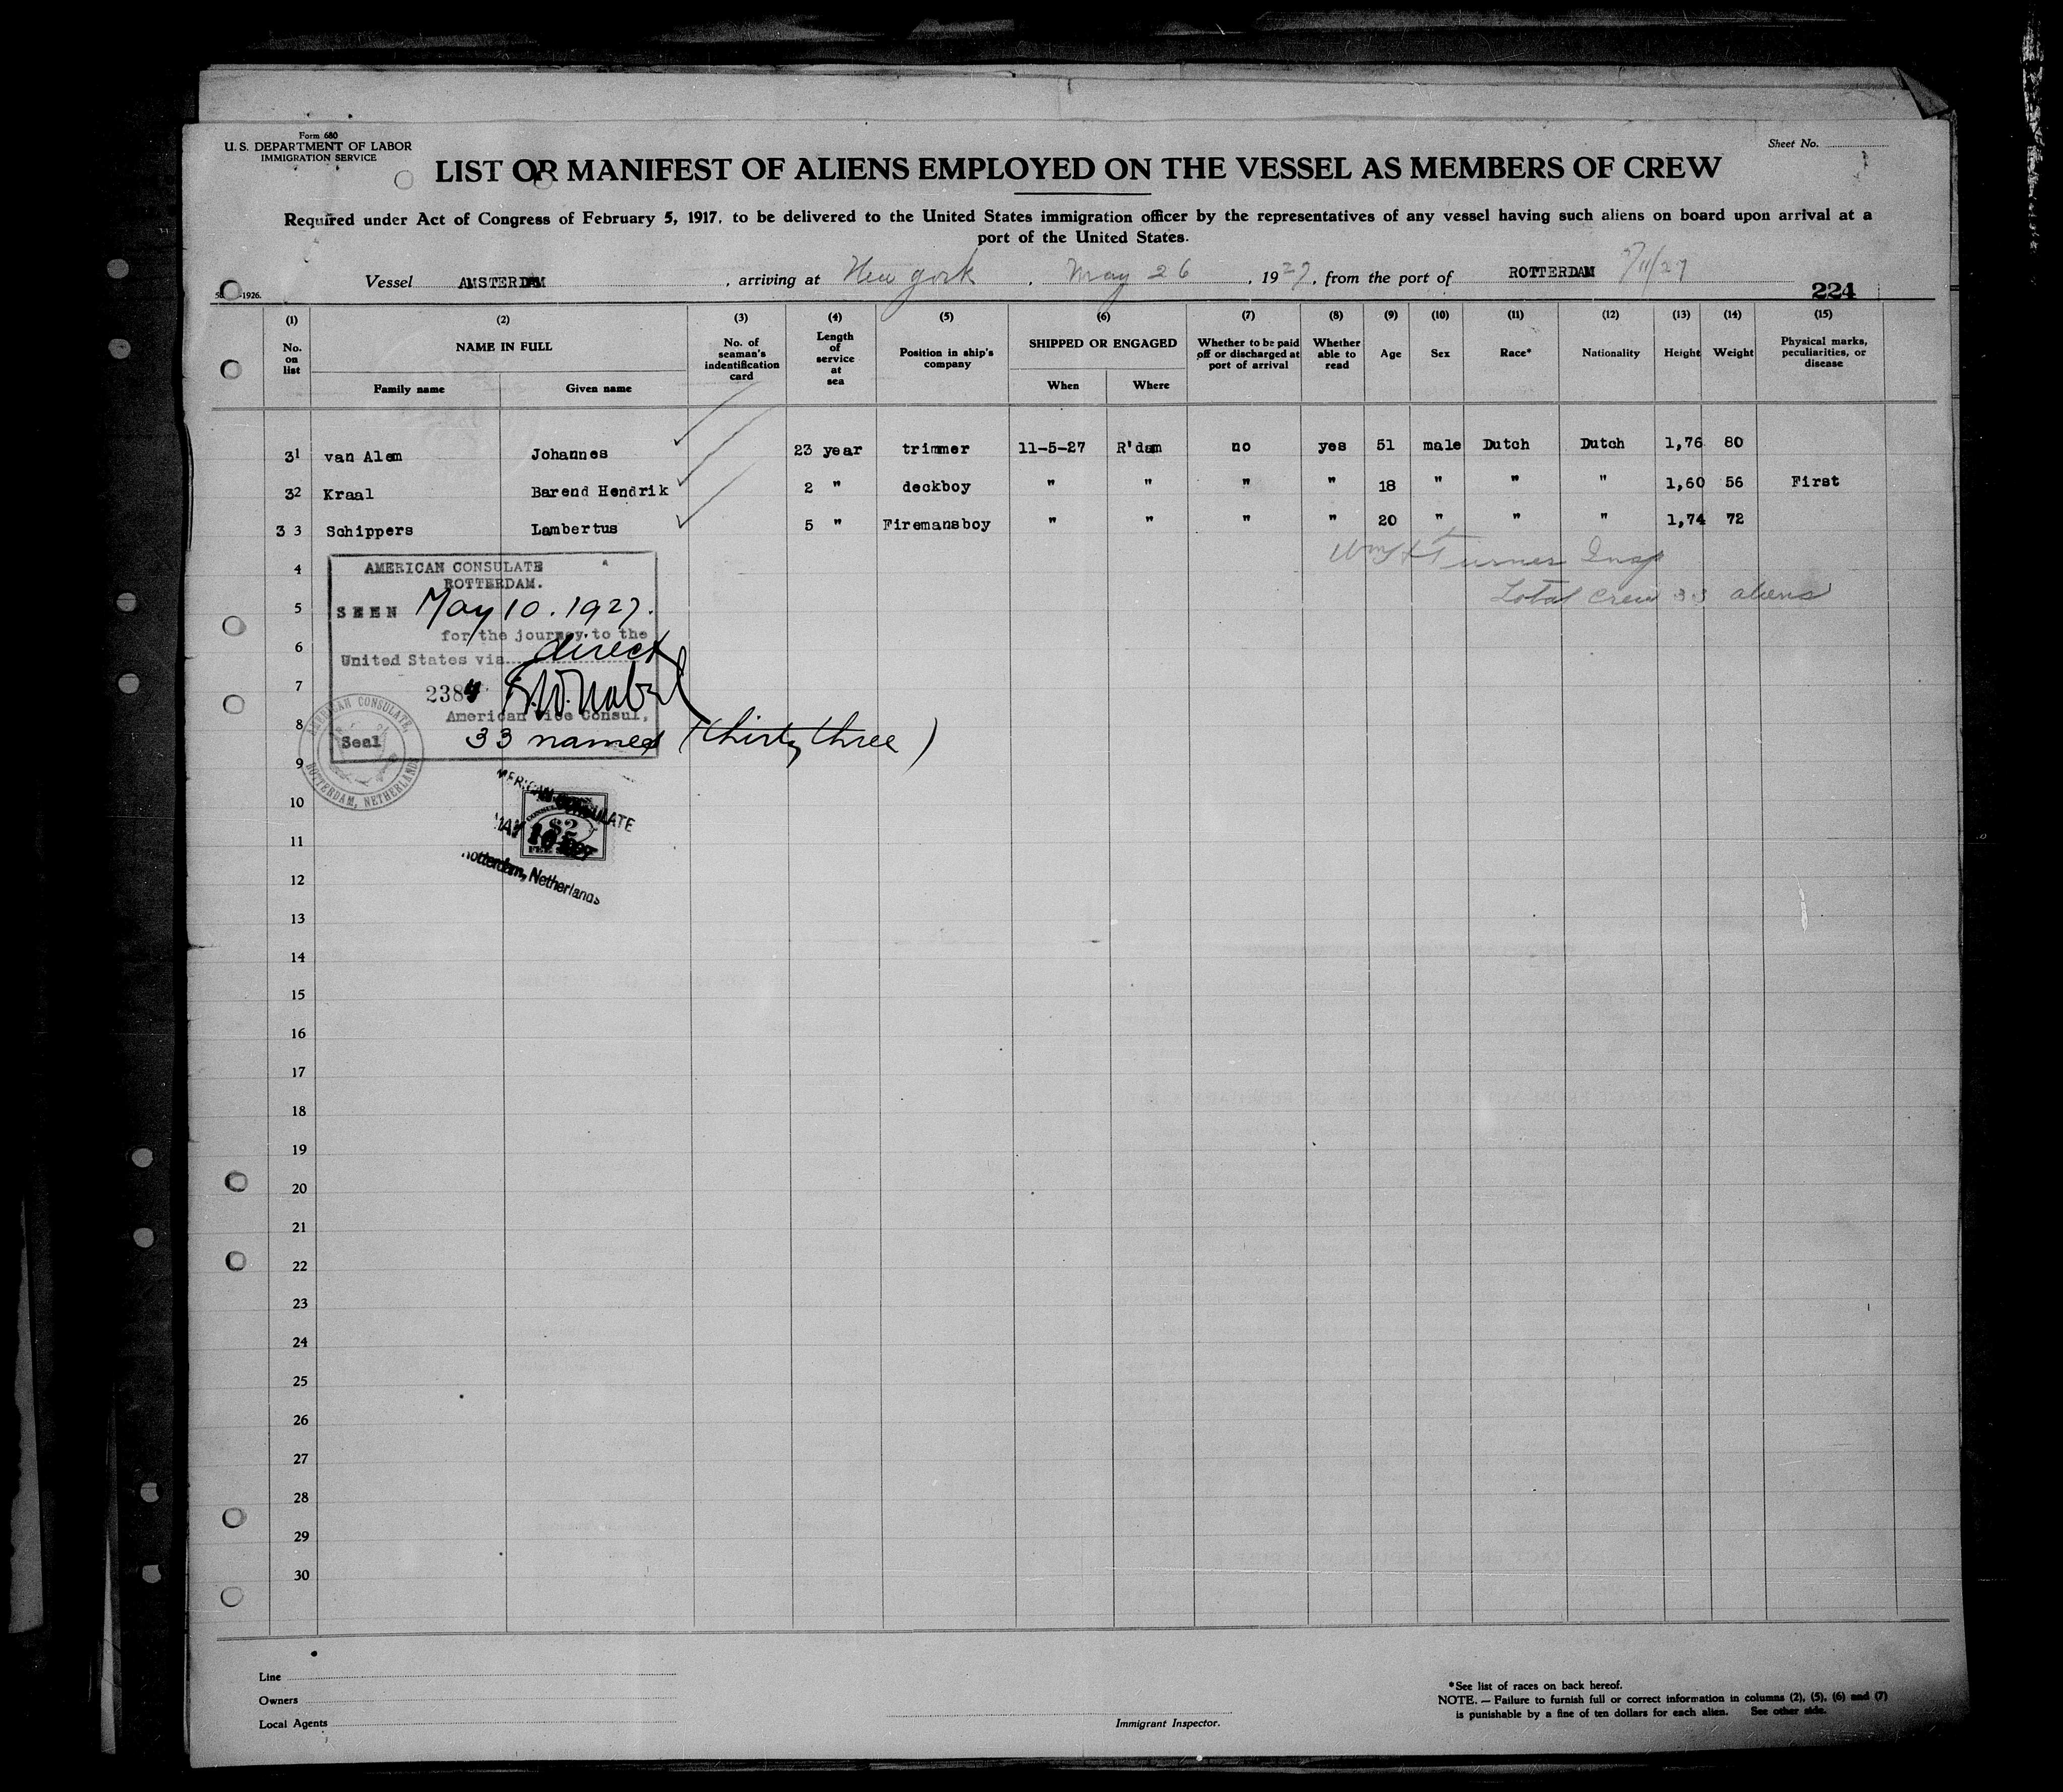 Form 680
U. S. DEPARTMENT OF LABOR
IMMIGRATION SERVICE
Sheet No.
LIST OR MANIFEST OF ALIENS EMPLOYED ON THE VESSEL AS MEMBERS OF CREW
Required under Act of Congress of February 5, 1917, to be delivered to the United States immigration officer by the representatives of any vessel having such aliens on board upon arrival at a
port of the United States.
Vessel AMSTERDAM, arriving at New York, May 26, 1927, from the port of ROTTERDAM 5/11/27
-1926.
224
(1) (2) (3) (4) (5) (6) (7) (8) (9) (10) (11) (12) (13) (14) (15)
No. on list NAME IN FULL Family name Given name No. of seaman's indentification card Length of service at sea Position in ship's company SHIPPED OR ENGAGED When Where Whether to be paid off or discharged at port of arrival Whether able to read Age Sex Race* Nationality Height Weight Physical marks, peculiarities, or disease
31 van Alem Johannes 23 year trimmer 11-5-27 R'dam no yes 51 male Dutch Dutch 1,76 80
32 Kraal Barend Hendrik 2 " deckboy " " " " 18 " " " 1,60 56 First
3 3 Schippers Lambertus 5 " Firemansboy " " " " 20 " " " 1,74 72
Turner Insp
Total crew 33 aliens
AMERICAN CONSULATE
ROTTERDAM.
SEEN May 10. 1927.
for the journey to the
United States via direct
2384
American Vice Consul,
Seal 33 names (thirty three)
AMERICAN CONSULATE
ROTTERDAM, NETHERLANDS
AMERICAN CONSULATE
$2
MAY 10
FEE
Rotterdam, Netherlands
4
5
6
7
8
9
10
11
12
13
14
15
16
17
18
19
20
21
22
23
24
25
26
27
28
29
30
Line
Owners
Local Agents
Immigrant Inspector.
*See list of races on back hereof.
NOTE. — Failure to furnish full or correct information in columns (2), (5), (6) and (7)
is punishable by a fine of ten dollars for each alien. See other side.